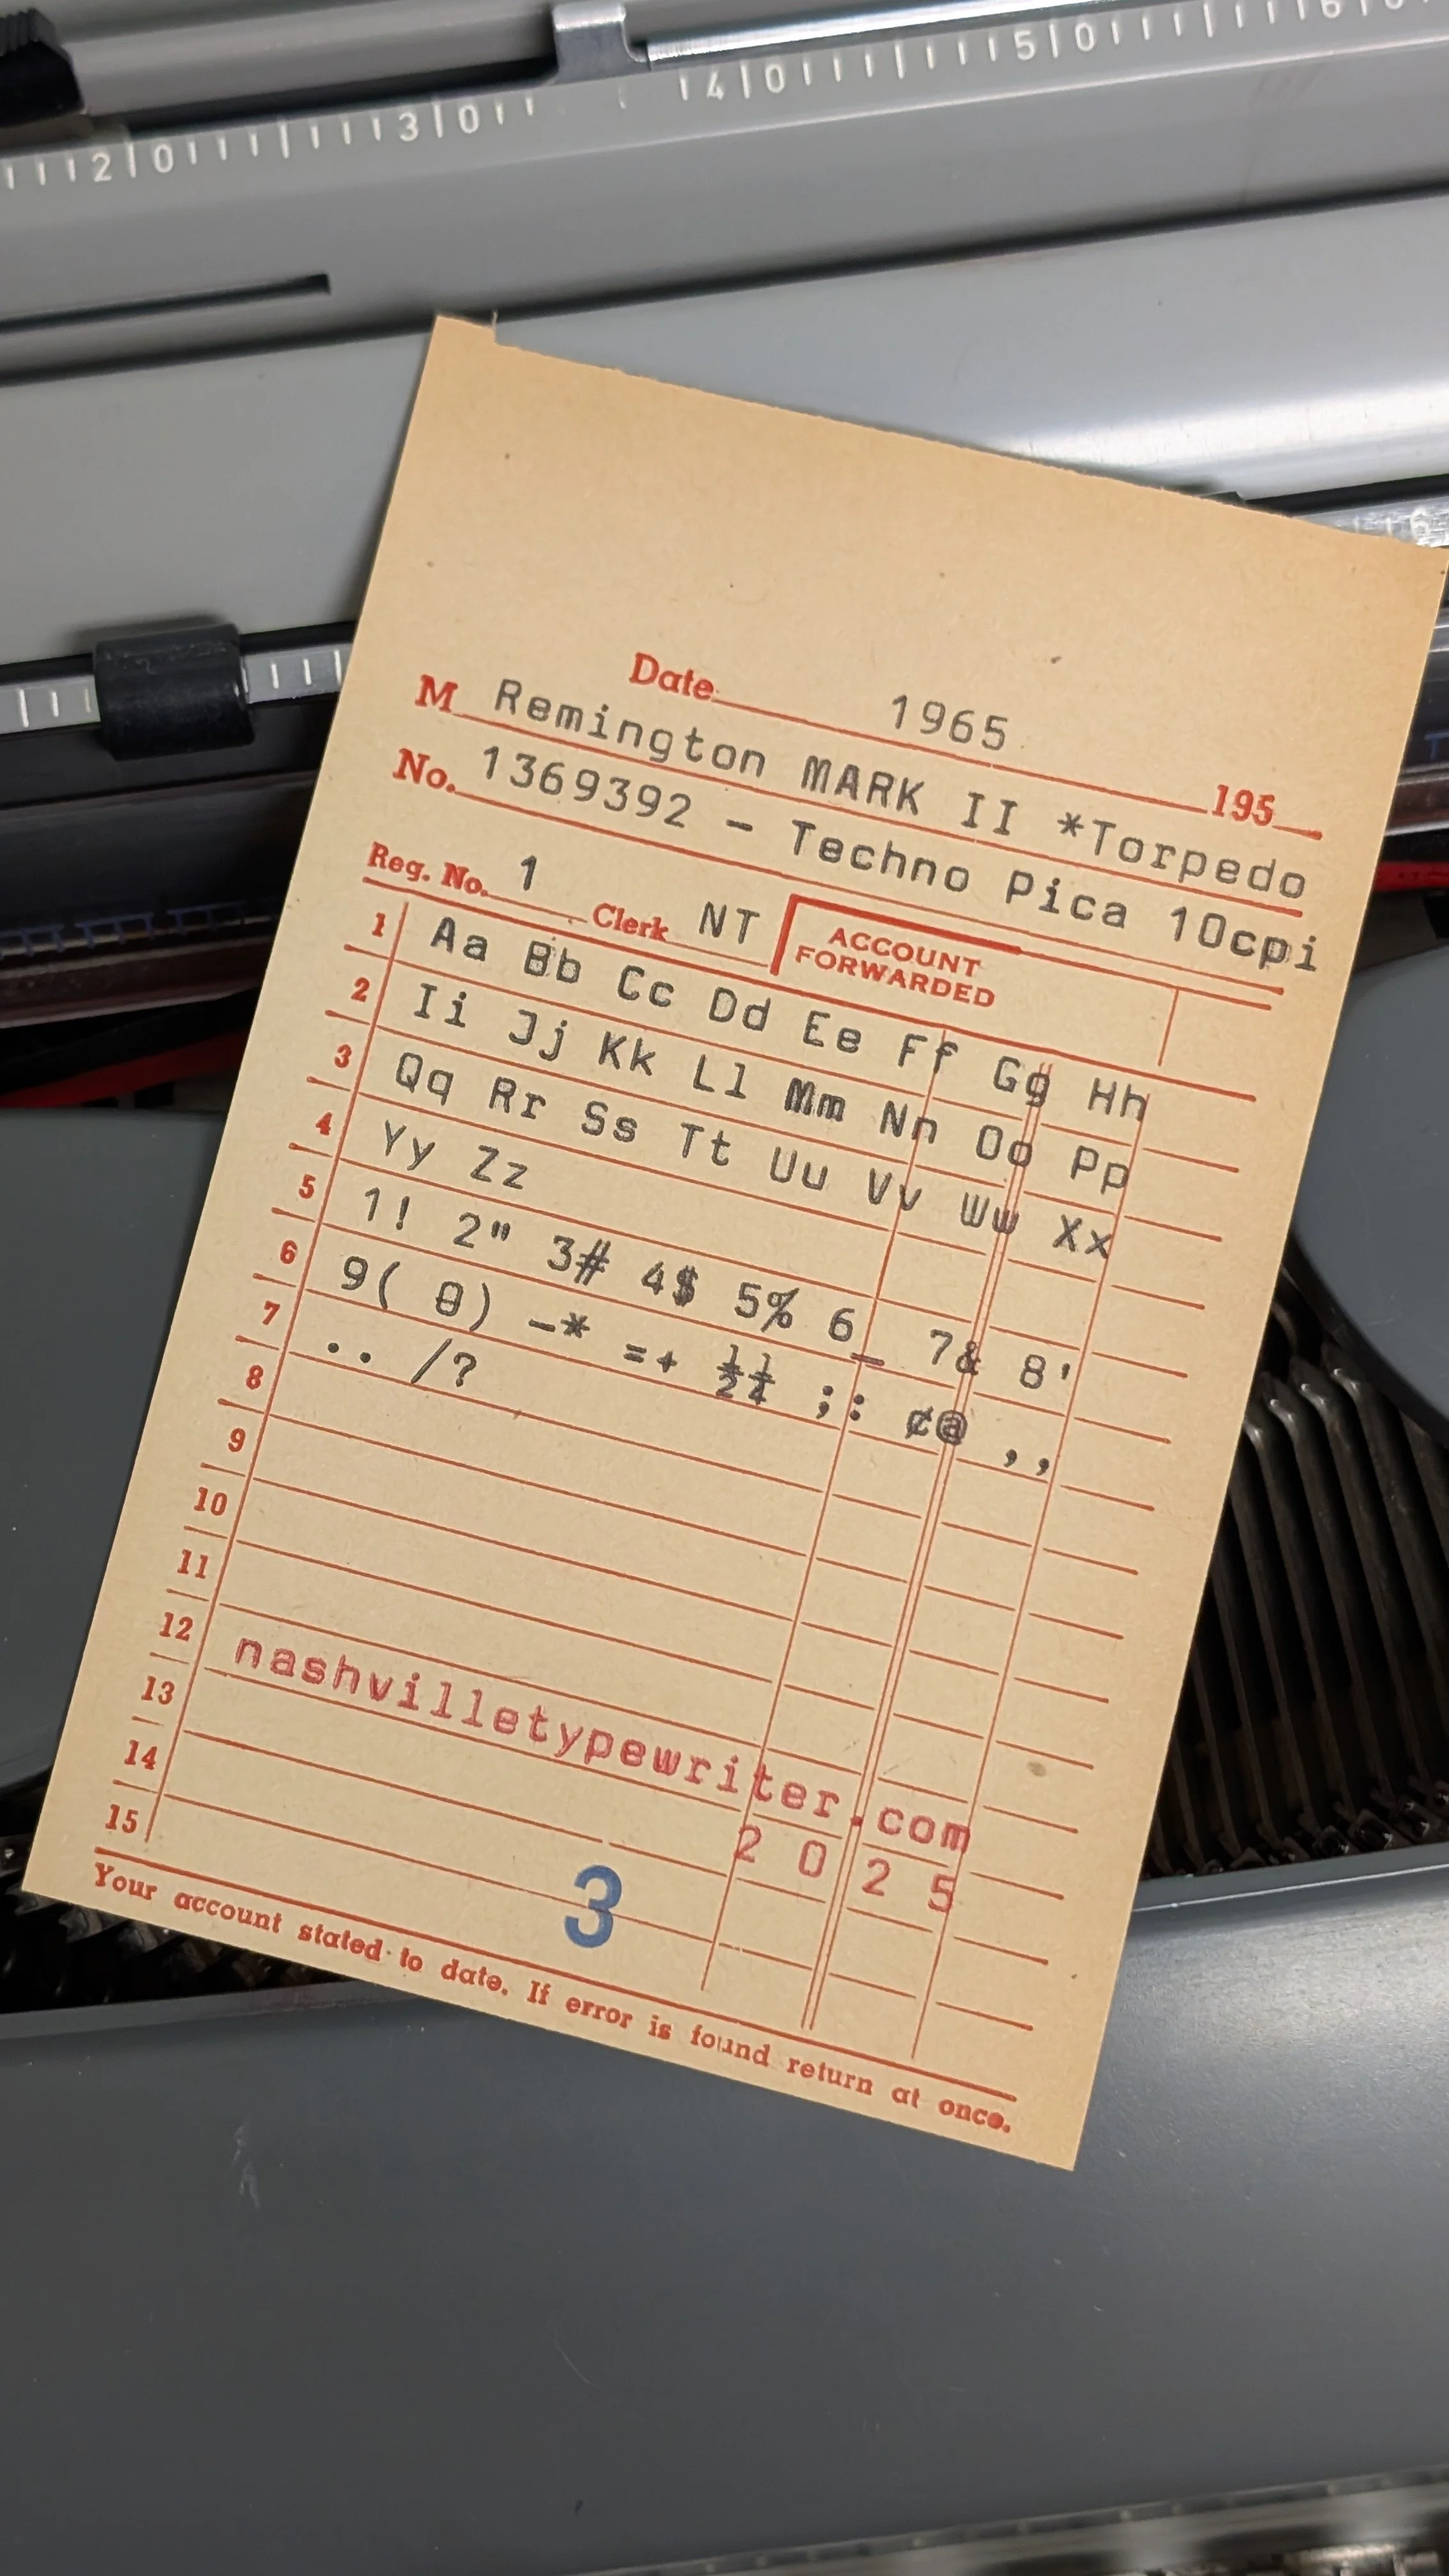 2|0 3|0 4|0 5|0 6
6
Date 1965 195
M Remington MARK II *Torpedo
No. 1369392 - Techno Pica 10cpi
Reg. No. 1 Clerk NT ACCOUNT
FORWARDED
1 Aa Bb Cc Dd Ee Ff Gg Hh
2 Ii Jj Kk Ll Mm Nn Oo Pp
3 Qq Rr Ss Tt Uu Vv Ww Xx
4 Yy Zz
5 1! 2" 3# 4$ 5% 6_ 7& 8'
6 9( 0) -* =+ ½¼ ;: ¢@ ,,
7 .. /?
8
9
10
11
12 nashvilletypewriter.com
13 2 0 2 5
14
15
3
Your account stated to date. If error is found return at once.